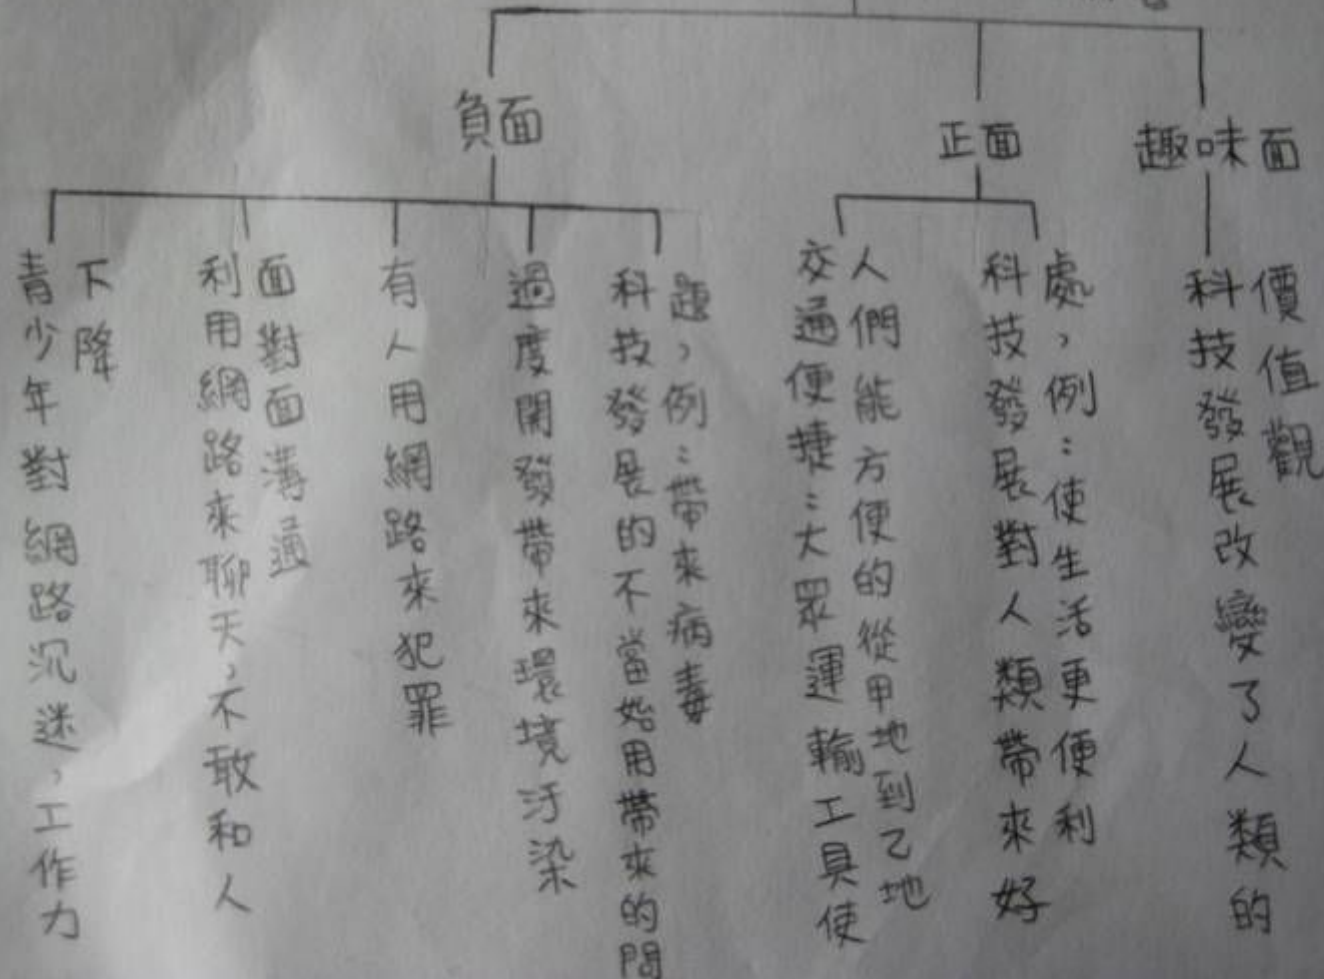 負面
青少年對網路沉迷，工作力
下降
利用網路來聊天，不敢和人
面對面溝通
有人用網路來犯罪
過度開發帶來環境汙染
科技發展的不當始用帶來的問
題，例：帶來病毒
正面
交通便捷：大眾運輸工具使
人們能方便的從甲地到乙地
科技發展對人類帶來好
處，例：使生活更便利
趣味面
科技發展改變了人類的
價值觀